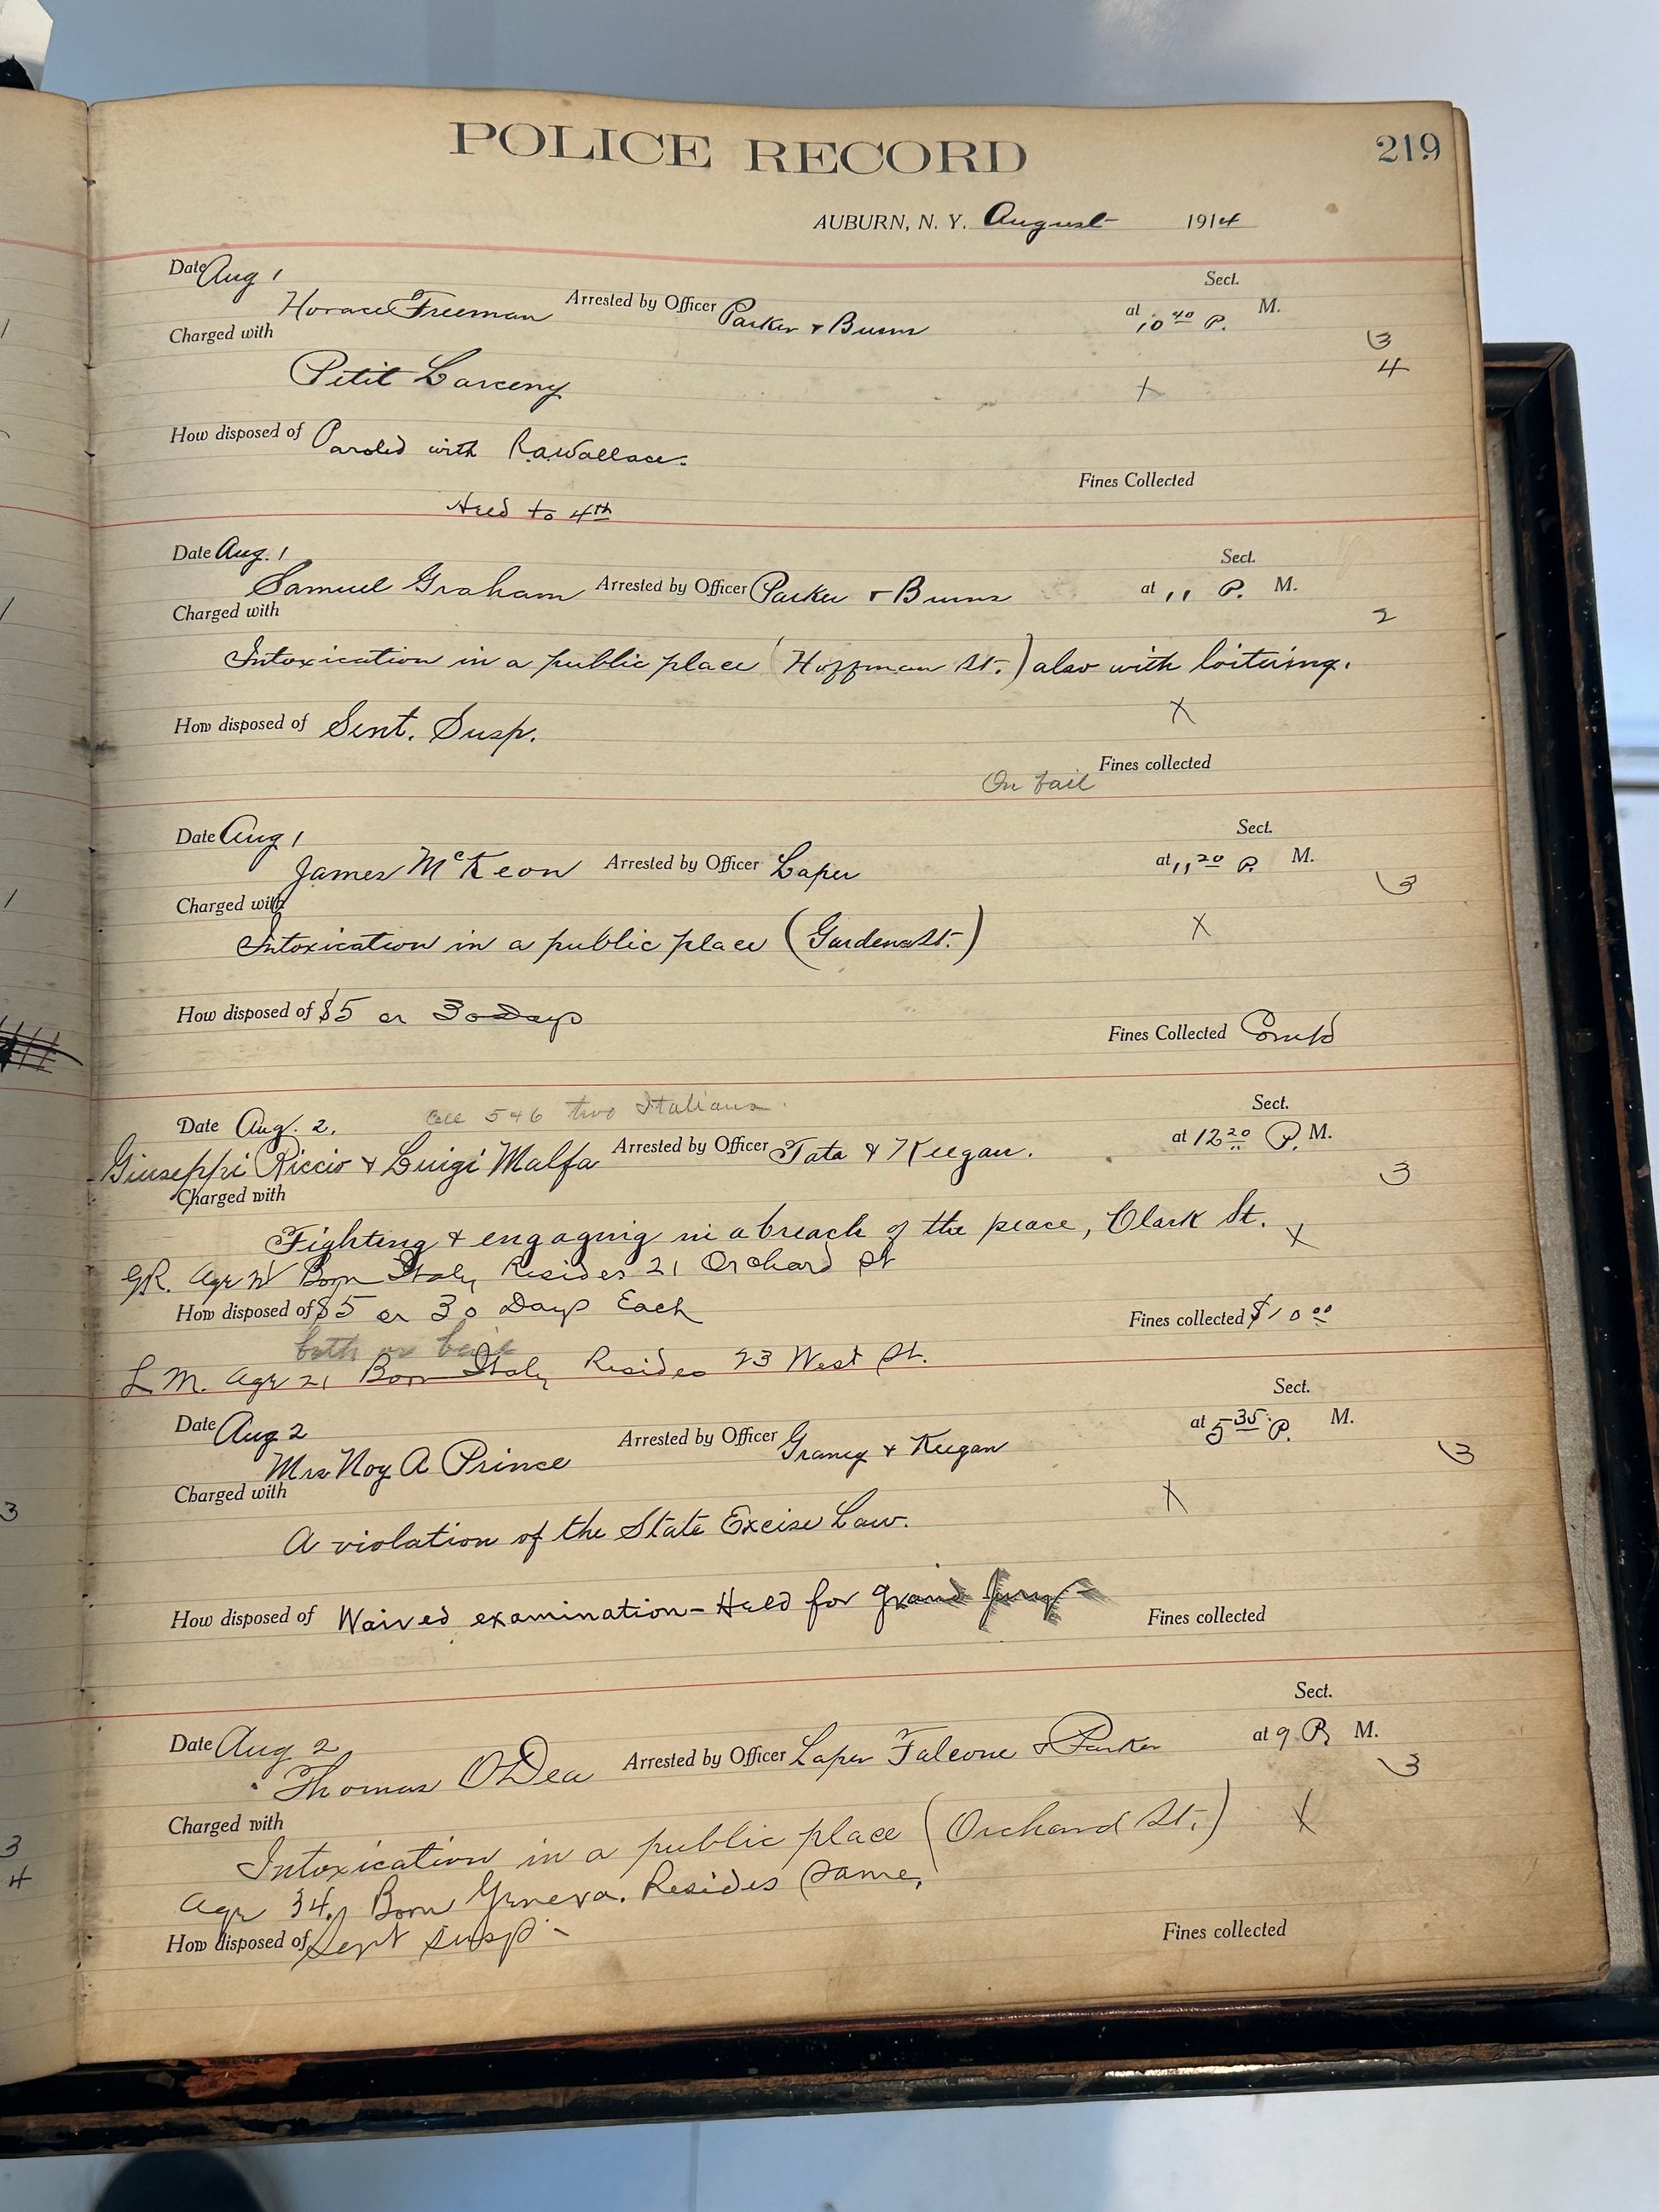 POLICE RECORD 219
AUBURN, N. Y. August 1914
Date Aug 1 Sect.
Horace Freeman Arrested by Officer Parker & Burns at 10 40 P. M.
Charged with 3
Petit Larceny X 4
How disposed of Paroled with Wallace.
Fines Collected
Held to 4th
Date Aug. 1 Sect.
Samuel Graham Arrested by Officer Parker & Burns at 11 P. M.
Charged with 2
Intoxication in a public place (Hoffman St.) also with loitering.
How disposed of Sent. Susp. X
Fines collected
On bail
Date Aug 1 Sect.
James McKeon Arrested by Officer Laper at 11 20 P. M.
Charged with 3
Intoxication in a public place (Garden St.) X
How disposed of $5 or 30 Days Fines Collected
Date Aug. 2. 546 two Italians. Sect.
Giuseppi Riccio & Luigi Malfa Arrested by Officer Tata & Keegan. at 12 20 P. M.
Charged with 3
Fighting & engaging in a breach of the peace, Clark St. X
GR. Age Born Italy Resides 21 Orchard St
How disposed of $5 or 30 Days Each Fines collected $10 00
both on bail
L M. Age 21 Born Italy Resides 23 West St.
Date Aug 2 Sect.
Mrs Noy A Prince Arrested by Officer Graney & Keegan at 5 35 P. M.
Charged with X 3
A violation of the State Excise Law.
How disposed of Waived examination - Held for grand jury - Fines collected
Date Aug 2 Sect.
Thomas O'Dea Arrested by Officer Laper Falcone & Parker at 9 P. M.
Charged with 3
Intoxication in a public place (Orchard St.) X
Age 34. Born Geneva. Resides same.
How disposed of Sent susp - Fines collected